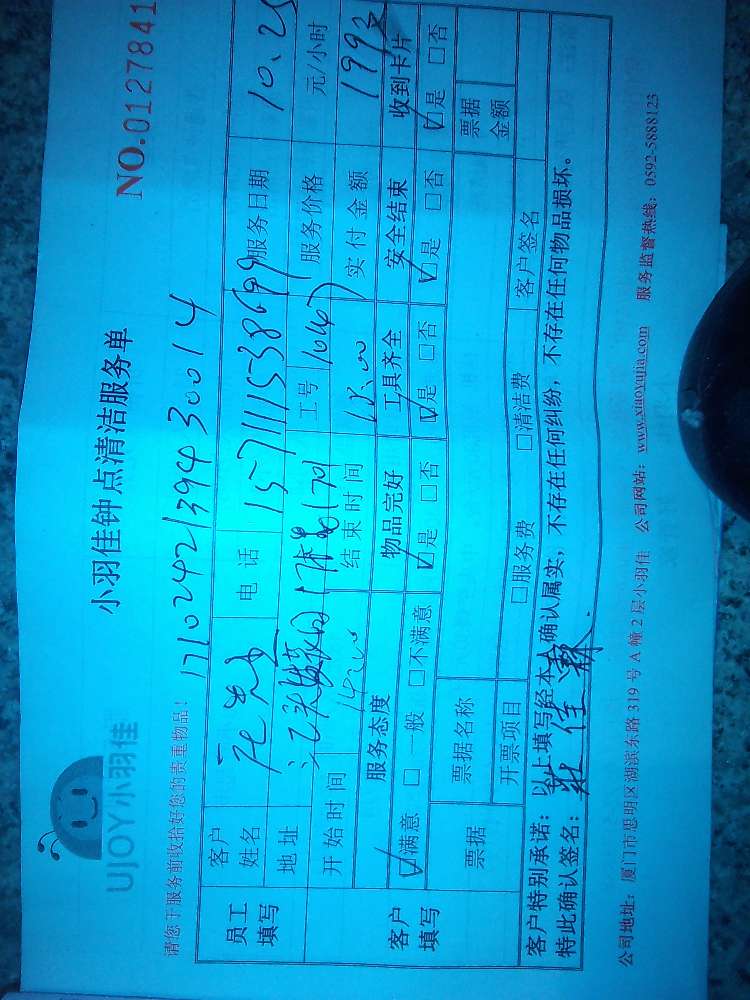 小羽佳钟点清洁服务单
NO.0127841
UJOY小羽佳
请您于服务前收拾好您的贵重物品！
171024213943 00014
员工填写
客户姓名
电话 157111538699
服务日期 10.25
地址
工号
服务价格 元/小时
客户填写
开始时间
结束时间
实付金额
服务态度 物品完好 工具齐全 安全结束 收到卡片
☑满意 □一般 □不满意 ☑是 □否 ☑是 □否 ☑是 □否 ☑是 □否
票据 票据名称 票据金额
开票项目 □服务费 □清洁费 客户签名
客户特别承诺：以上填写经本人确认属实，不存在任何纠纷，不存在任何物品损坏。
特此确认签名：
公司地址：厦门市思明区湖滨东路 319 号 A 幢 2 层小羽佳 公司网站：www.xiaoyujia.com 服务监督热线：0592-5888123